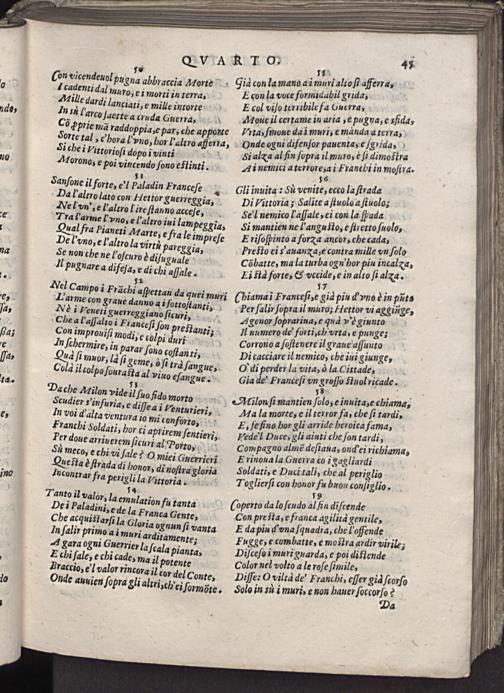 QVARTO. 45
50
Con vicendeuol pugna abbraccia Morte
I cadenti dal muro, e i morti in terra,
Mille dardi lanciati, e mille intorte
In sù l'arco saette a cruda Guerra,
Cō pprie mā raddoppia, e par, che apporte
Sorte tal, c'hora l'vno, hor l'altro afferra,
Si che i Vittoriosi dopo i vinti
Morono, e poi vincendo sono estinti.
51
Sansone il forte, e'l Paladin Francese
Da l'altro lato con Hettor guerreggia,
Ne l'vn', e l'altro l'ire stanno accese,
Tra l'arme l'vno, e l'altro iui lampeggia,
Qual fra Pianeti Marte, e fra le imprese
De l'vno, e l'altro la virtù pareggia,
Se non che ne l'oscuro è disuguale
Il pugnare a difesa, e di chi assale.
52
Nel Campo i Frāchi aspettan da quei muri
L'arme con graue danno a i sottostanti,
Nè i Veneti guerreggiano sicuri,
Che a l'assalto i Francesi son prestanti;
Con improuisi modi, e colpi duri
In schermire, in parar sono costanti,
Quà si muor, là si geme, ò si trà sangue,
Colà il colpo sourasta al viuo esangue.
53
Da che Milon vide il suo fido morto
Scudier s'infuria, e disse a i Venturieri,
In voi d'alta ventura io mi conforto,
Franchi Soldati, hor ci aprirem sentieri,
Per doue arriuerem sicuri al Porto,
Sù meco, e chi vi sale? O miei Guerrieri
Questa è strada di honor, di nostra gloria
Incontrar fra perigli la Vittoria.
54
Tanto il valor, la emulation fu tanta
De i Paladini, e de la Franca Gente,
Che acquistarsi la Gloria ognun si vanta
In salir primo a i muri arditamente;
A gara ogni Guerrier la scala pianta,
E chi sale, e chi cade, ma il potente
Braccio, e'l valor rincora il cor del Conte,
Onde auuien sopra gli altri, ch'ei sormōte.
55
Già con la mano a i muri alto si afferra,
E con la voce formidabil grida,
E col viso terribile fa Guerra,
Moue il certame in aria, e pugna, e sfida,
Vita, smoue da i muri, e manda a terra,
Onde ogni difensor pauenta, e sgrida,
Si alza al fin sopra il muro, è si dimostra
A i nemici a terrore, a i Franchi in mostra.
56
Gli inuita: Sù venite, ecco la strada
Di Vittoria; Salite a stuolo a stuolo;
Se'l nemico l'assale, ei con la spada
Si mantien ne l'angusto, e stretto suolo,
E risospinto a forza ancor, che cada,
Presto ei s'auanza, e contra mille vn solo
Cōbatte, ma la turba ogn'hor piu incalza,
Ei stà forte, & vccide, e in alto si alza.
57
Chiama i Francesi, e già piu d'vno è in pūto
Per salir sopra il muro; Hettor vi aggiūge,
Agenor soprariua, e quà v'è giunto
Il numero de' forti, ch'vrta, e punge;
Corrono a sostenere il graue assunto
Di cacciare il nemico, che iui giunge,
O' di perder la vita, ò la Cittade,
Gia de' Francesi vn grosso stuol ricade.
58
Milon si mantien solo, e inuita, e chiama,
Ma la morte, e il terror fa, che si tardi,
E, se fino hor gli arride heroica fama,
Vede'l Duce, gli aiuti che son tardi,
Compagno almē desiaua, ond'ei richiama,
E rinoua la Guerra co i gagliardi
Soldati, e Duci tali, che al periglio
Togliersi con honor fu buon consiglio.
59
Coperto da lo scudo al fin discende
Con presta, e franca agilità gentile,
E da piu d'vna squadra, che l'offende
Fugge, e combatte, e mostra ardir virile;
Disceso i muri guarda, e poi distende
Color nel volto a le rose simile,
Disse: O viltà de' Franchi, esser già scorso
Solo in sù i muri, e non hauer soccorso?
Da